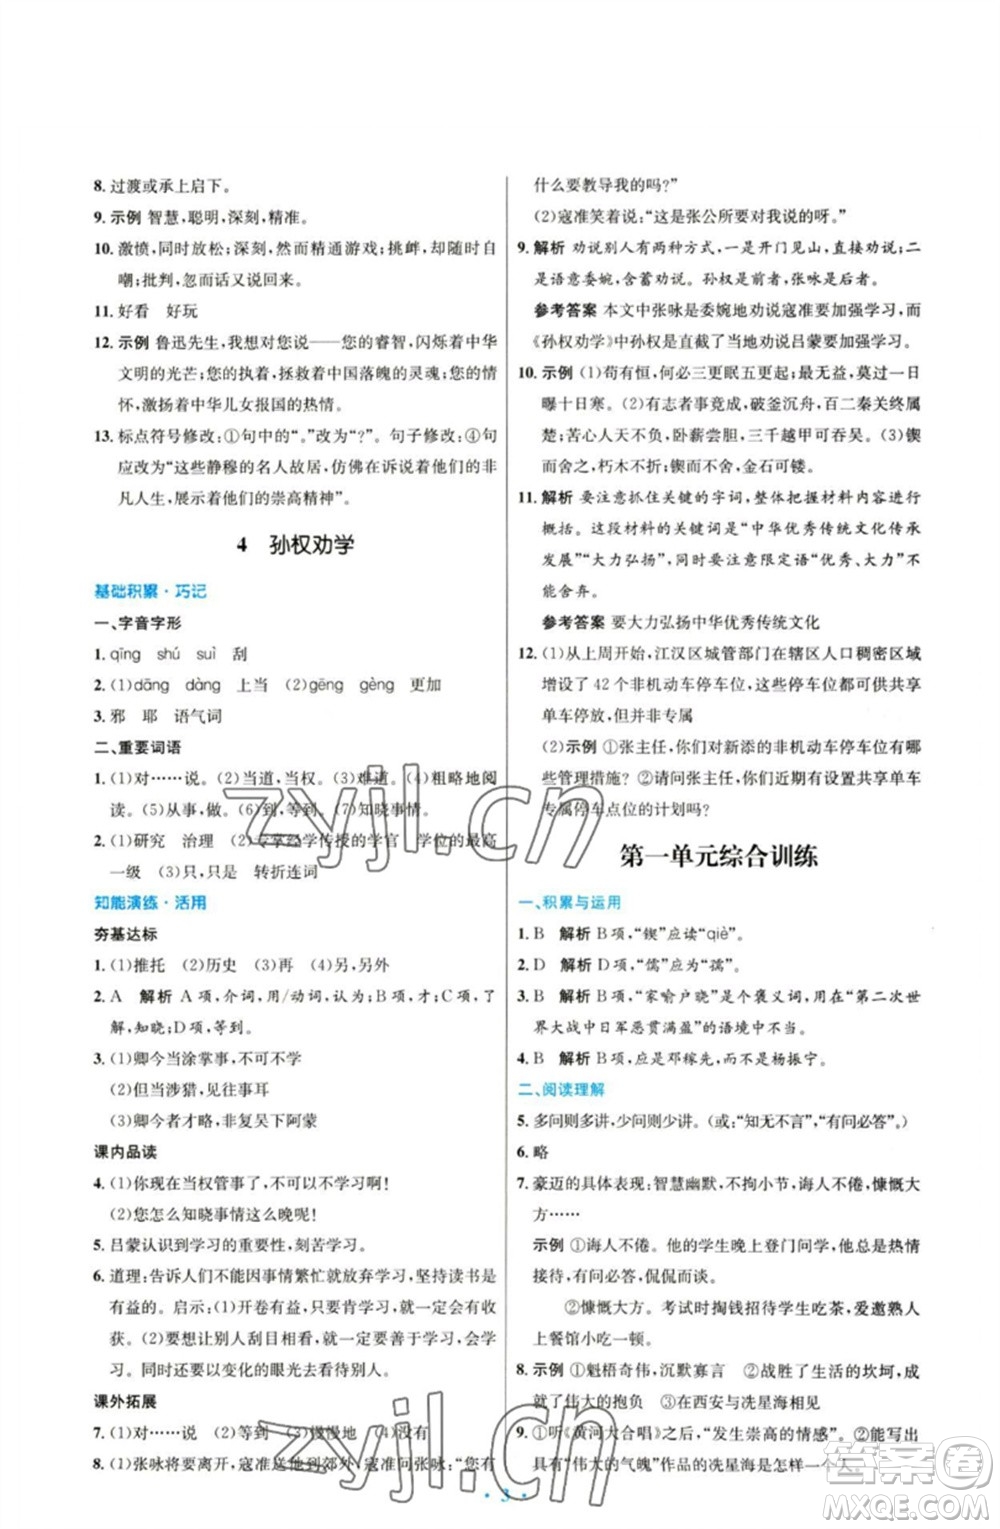 8. 过渡或承上启下。
9. 示例 智慧,聪明,深刻,精准。
10. 激愤,同时放松;深刻,然而精通游戏;挑衅,却随时自
嘲;批判,忽而话又说回来。
11. 好看 好玩
12. 示例 鲁迅先生,我想对您说——您的睿智,闪烁着中华
文明的光芒;您的倔强,拯救着中国落魄的灵魂;您的情
怀,激扬着中华儿女报国的热情。
13. 标点符号修改:①句中的“。”改为“?”。句子修改:④句
应改为“这些静穆的名人故居,仿佛在诉说着他们的非
凡人生,展示着他们的崇高精神”。
4 孙权劝学
基础积累·巧记
一、字音字形
1. qīng shú suì 刮
2. (1)dāng dàng 上当 (2)gēng gèng 更加
3. 邪 耶 语气词
二、重要词语
1. (1)对……说。(2)当道,当权。(3)难道。(4)粗略地阅
读。(5)从事,做。(6)到,等到。(7)知晓事情。
2. (1)研究 治理 (2)专掌经学传授的学官 学位的最高
一级 (3)只,只是 转折连词
知能演练·活用
夯基达标
1. (1)推托 (2)历史 (3)再 (4)另,另外
2. A 解析 A项,介词,用/动词,认为;B项,才干;C项,了
解,知晓;D项,等到。
3. (1)卿今当涂掌事,不可不学
(2)但当涉猎,见往事耳
(3)卿今者才略,非复吴下阿蒙
课内品读
4. (1)你现在当权管事了,不可不学习啊!
(2)您怎么知晓事情这么晚呢!
5. 吕蒙认识到学习的重要性,刻苦学习。
6. 道理:告诉人们不能因事情繁忙就放弃学习,坚持读书是
有益的。启示:(1)开卷有益,只要肯学习,就会有收
获。(2)要想让别人刮目相看,就一定要善于学习,勤学
习。同时还要以变化的眼光去看待别人。
课外拓展
7. (1)对……说 (2)等到 (3)慢慢地 (4)没有
8. (1)张咏将要离开,寇准送他到郊外,寇准问张咏:“您有
什么要教导我的吗?”
(2)寇准笑着说:“这是张公所要对我说的呀。”
9. 解析 劝说别人有两种方式,一是开门见山,直接劝说;二
是语意委婉,含蓄劝说。孙权是前者,张咏是后者。
参考答案 本文中张咏是委婉地劝说寇准要加强学习,而
《孙权劝学》中孙权是直截了当地劝说吕蒙要加强学习。
10. 示例 (1)苟有恒,何必三更眠五更起;最无益,莫过一日
曝十日寒。(2)有志者事竟成,破釜沉舟,百二秦关终属
楚;苦心人天不负,卧薪尝胆,三千越甲可吞吴。(3)锲
而舍之,朽木不折;锲而不舍,金石可镂。
11. 解析 要注意抓住关键的字词,整体把握材料内容进行
概括。这段材料的关键词是“中华优秀传统文化传承
发展”“大力弘扬”,其中需要关注限定语“优秀、大力”不
能舍弃。
参考答案 要大力弘扬中华优秀传统文化
12. (1)从上周开始,江汉区城管部门在辖区人口稠密区域
增设了42个非机动车停车位,这些停车位都可供共享
单车停放,但并非专属
(2)示例 ①张主任,你们对新添的非机动车停车位有哪
些管理措施? ②请问张主任,你们近期有设置共享单车
专属停车点位的计划吗?
第一单元综合训练
一、积累与运用
1. B 解析 B项,“锲”应读“qiè”。
2. D 解析 D项,“儒”应为“孺”。
3. B 解析 B项,“家喻户晓”是个褒义词,用在“第二次世
界大战中日军恶贯满盈”的语境中不当。
4. B 解析 B项,应是邓稼先,而非杨振宁。
二、阅读理解
5. 多问则多讲,少问则少讲。(或:“知无不言”,“有问必答”。)
6. 略
7. 豪迈的具体表现:智慧幽默,不拘小节,诲人不倦,慷慨大
方……
示例 ①诲人不倦。他的学生晚上登门问学,他总是热情
接待,有问必答,侃侃而谈。
②慷慨大方。考试时掏钱招待学生吃茶,爱邀熟人
上餐馆小吃一顿。
8. 示例 ①魁梧奇伟,沉默寡言 ②战胜了生活的坎坷,成
就了伟大的抱负 ③在西安与冼星海见面
9. ①听《黄河大合唱》,“发生崇高的情感”。②能写出
具有“伟大的气魄”作品的冼星海是怎样一个人
· 3 ·
zyjl.cn
zyjl.cn
答案圈
MXQE.COM